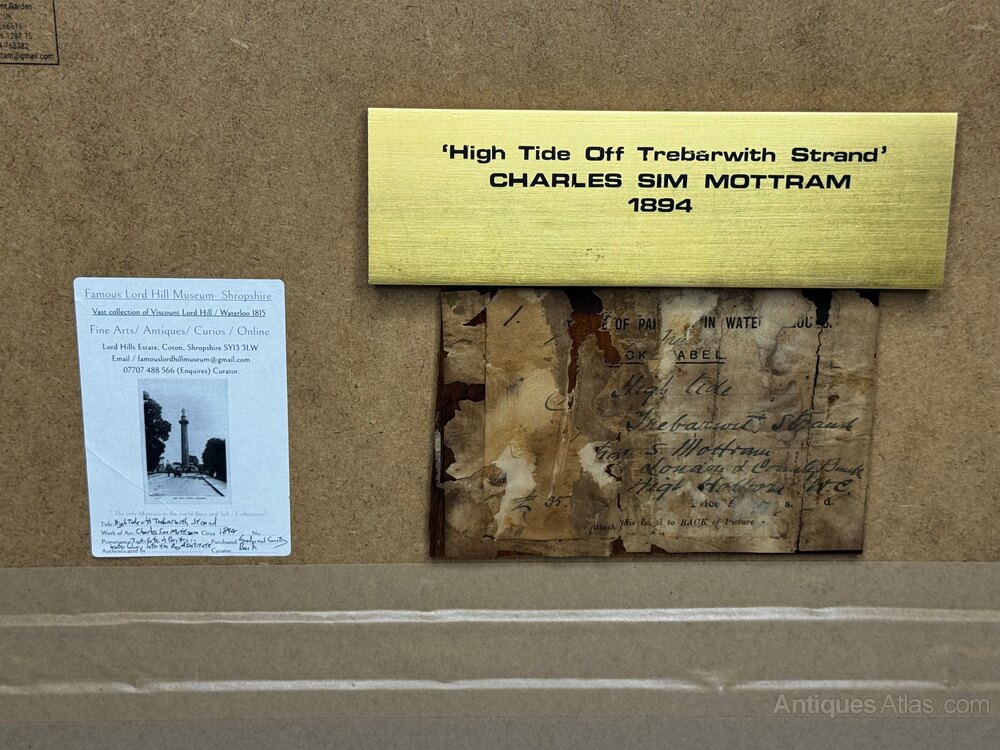 Garden
UK
tant@gmail.com
'High Tide Off Trebarwith Strand'
CHARLES SIM MOTTRAM
1894
Famous Lord Hill Museum- Shropshire
Vast collection of Viscount Lord Hill / Waterloo 1815
Fine Arts/ Antiques/ Curios / Online
Lord Hills Estate, Coton, Shropshire SY13 3LW
Email / famouslordhillmuseum@gmail.com
07707 488 566 (Enquires) Curator.
"The only Museum in the world Buys and Sell - Collections"
Title: High Tide off Trebarwith Strand
Work of Art: Charles Sim Mottram Circa 1894 No.
Provenance Purchased
Authenticated by Curator
1.
OF PAI IN WATE
ABEL.
High tide
Trebarwith Strand
S. Mottram
London & County Bank
High Holborn W.C
£ 35. s. d.
Attach this La el to BACK of Picture
AntiquesAtlas.com